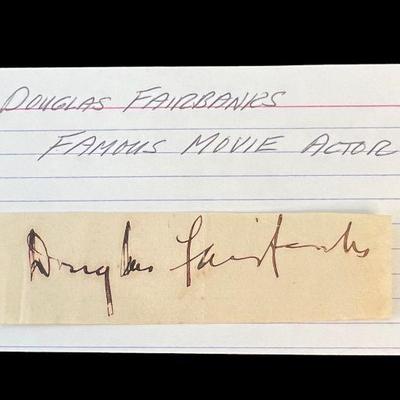 DOUGLAS FAIRBANKS
FAMOUS MOVIE ACTOR
Douglas Fairbanks